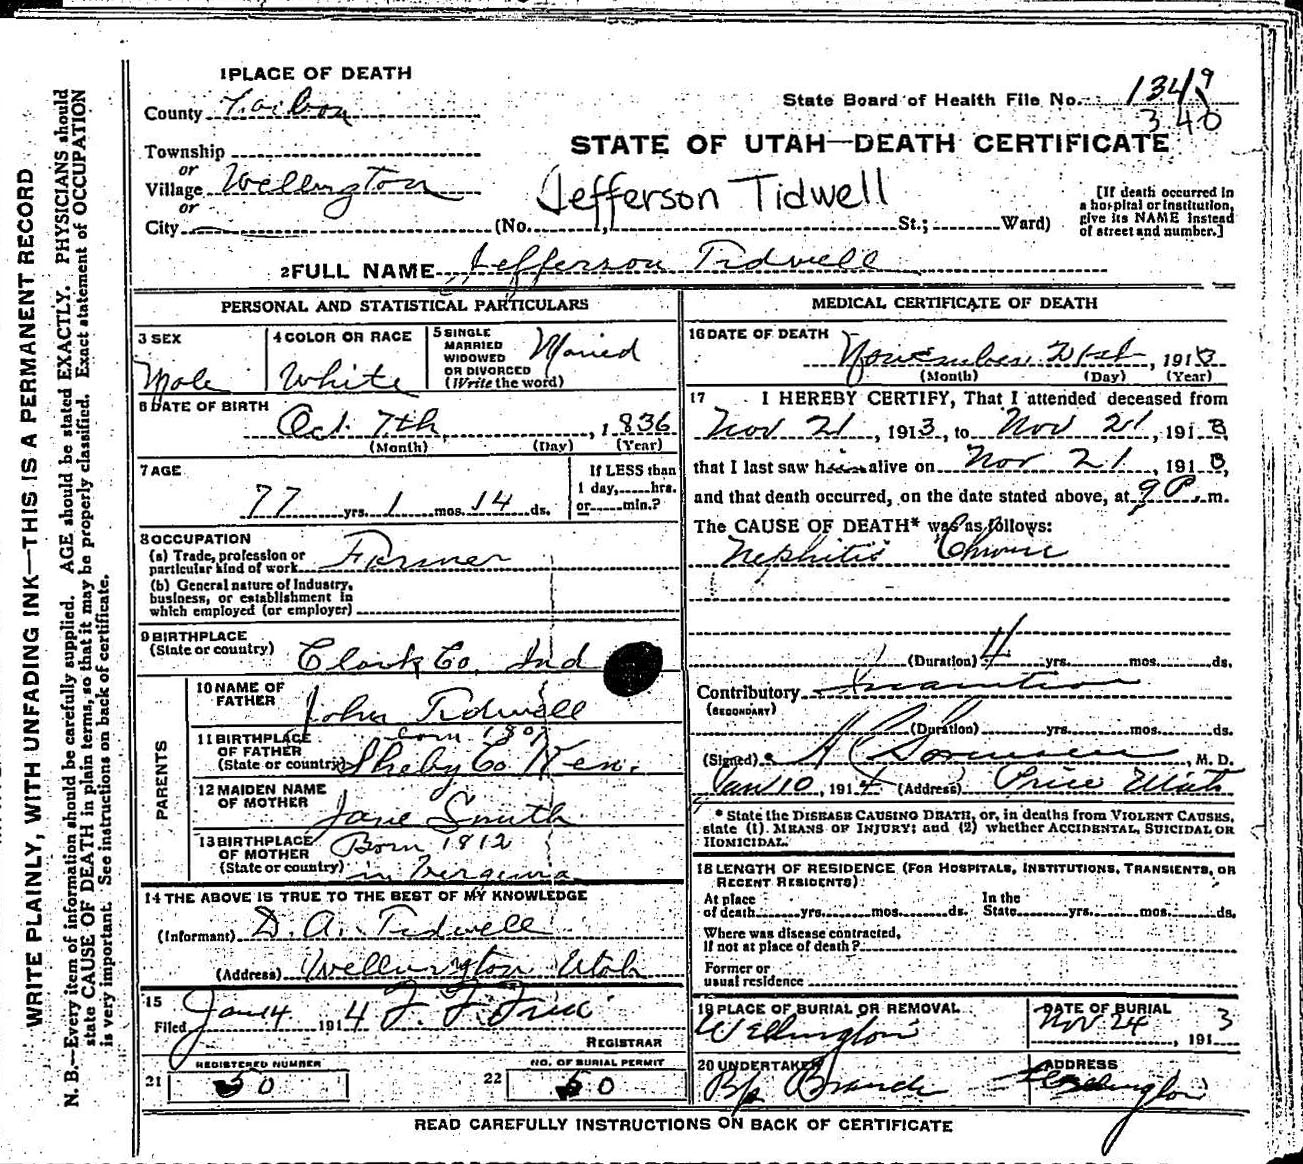 1 PLACE OF DEATH
County Carbon
State Board of Health File No. 1349
340
STATE OF UTAH—DEATH CERTIFICATE
Township
or
Village Wellington
or
City
Jefferson Tidwell
(No. , St.; Ward)
[If death occurred in
a hospital or institution,
give its NAME instead
of street and number.]
2 FULL NAME Jefferson Tidwell
PERSONAL AND STATISTICAL PARTICULARS
3 SEX
Male
4 COLOR OR RACE
White
5 SINGLE
MARRIED
WIDOWED
OR DIVORCED
(Write the word)
Maried
6 DATE OF BIRTH
Oct. 7th, 1836
(Month) (Day) (Year)
7 AGE
77 yrs. 1 mos. 14 ds.
If LESS than
1 day, hrs.
or min.?
8 OCCUPATION
(a) Trade, profession or
particular kind of work Farmer
(b) General nature of Industry,
business, or establishment in
which employed (or employer)
9 BIRTHPLACE
(State or country)
Clark Co, Ind
PARENTS
10 NAME OF
FATHER
John Tidwell
born 180
11 BIRTHPLACE
OF FATHER
(State or country)
Sheby Co Ken.
12 MAIDEN NAME
OF MOTHER
Jane Smith
13 BIRTHPLACE
OF MOTHER
(State or country)
Born 1812
in Vergina
14 THE ABOVE IS TRUE TO THE BEST OF MY KNOWLEDGE
(Informant) D. A. Tidwell
(Address) Wellington Utah
15
Filed Jan 14 1914
REGISTRAR
21 REGISTERED NUMBER
50
22 NO. OF BURIAL PERMIT
50
MEDICAL CERTIFICATE OF DEATH
16 DATE OF DEATH
November 21st, 1913
(Month) (Day) (Year)
17 I HEREBY CERTIFY, That I attended deceased from
Nov 21, 1913, to Nov 21, 1913,
that I last saw him alive on Nov 21, 1913,
and that death occurred, on the date stated above, at 9 P. m.
The CAUSE OF DEATH* was as follows:
Nephitis Chronic
(Duration) 4 yrs. mos. ds.
Contributory Inanition
(SECONDARY)
(Duration) yrs. mos. ds.
(Signed) Sorensen, M. D.
Jan 10, 1914 (Address) Price Utah
* State the DISEASE CAUSING DEATH, or, in deaths from VIOLENT CAUSES,
state (1) MEANS OF INJURY; and (2) whether ACCIDENTAL, SUICIDAL OR
HOMICIDAL.
18 LENGTH OF RESIDENCE (FOR HOSPITALS, INSTITUTIONS, TRANSIENTS, OR
RECENT RESIDENTS)
At place
of death yrs. mos. ds.
In the
State yrs. mos. ds.
Where was disease contracted,
if not at place of death?
Former or
usual residence
19 PLACE OF BURIAL OR REMOVAL
Wellington
DATE OF BURIAL
Nov 24, 1913
20 UNDERTAKER
Branch
ADDRESS
Wellington
READ CAREFULLY INSTRUCTIONS ON BACK OF CERTIFICATE
WRITE PLAINLY, WITH UNFADING INK—THIS IS A PERMANENT RECORD
N. B.—Every item of information should be carefully supplied. AGE should be stated EXACTLY. PHYSICIANS should
state CAUSE OF DEATH in plain terms, so that it may be properly classified. Exact statement of OCCUPATION
is very important. See instructions on back of certificate.